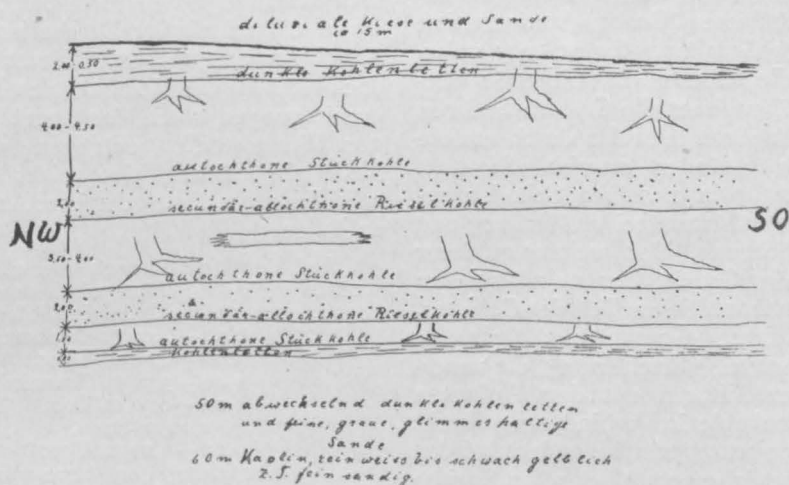 diluviale Kiese und Sande
ca 15m
2.00-0.50
dunkle Kohlenletten
4.00-4.50
autochthone Stückkohle
2.00
secundär-allochthone Rieselkohle
NW
SO
3.50-4.00
autochthone Stückkohle
2.00
secundär-allochthone Rieselkohle
1.00
autochthone Stückkohle
Kohlenletten
50m abwechselnd dunkle Kohlenletten
und feine, graue, glimmerhaltige
Sande
60m Kaolin, rein weiss bis schwach gelblich
z.T. fein sandig.